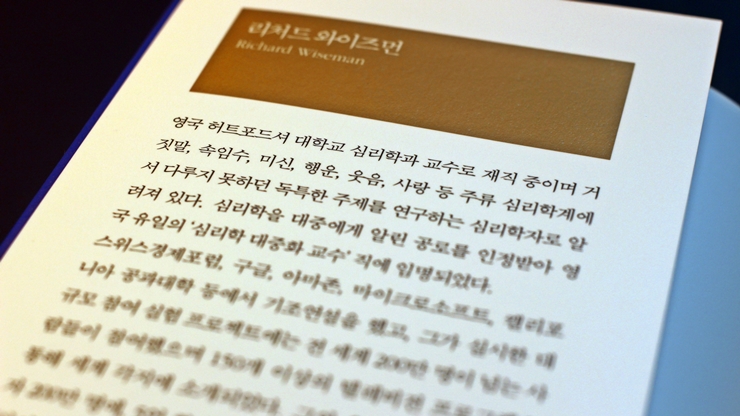 리처드 와이즈먼
Richard Wiseman
영국 허트포드셔 대학교 심리학과 교수로 재직 중이며 거
짓말, 속임수, 미신, 행운, 웃음, 사랑 등 주류 심리학계에
서 다루지 못하던 독특한 주제를 연구하는 심리학자로 알
려져 있다. 심리학을 대중에게 알린 공로를 인정받아 영
국 유일의 ‘심리학 대중화 교수’ 직에 임명되었다.
스위스경제포럼, 구글, 아마존, 마이크로소프트, 캘리포
니아 공과대학 등에서 기조연설을 했고, 그가 실시한 대
규모 참여 실험 프로젝트에는 전 세계 200만 명이 넘는 사
람들이 참여했으며 150개 이상의 텔레비전 프로그
통해 세계 각지에 소개되었다.
200만 명에,